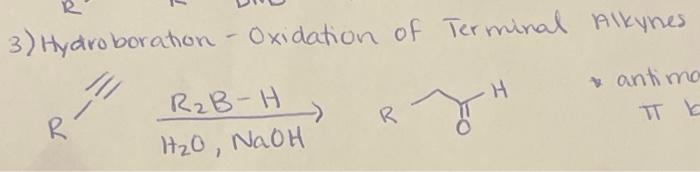 3) Hydroboration - Oxidation of Terminal Alkynes
R
R₂B-H
H₂O, NaOH
R
H
O
* antima
π